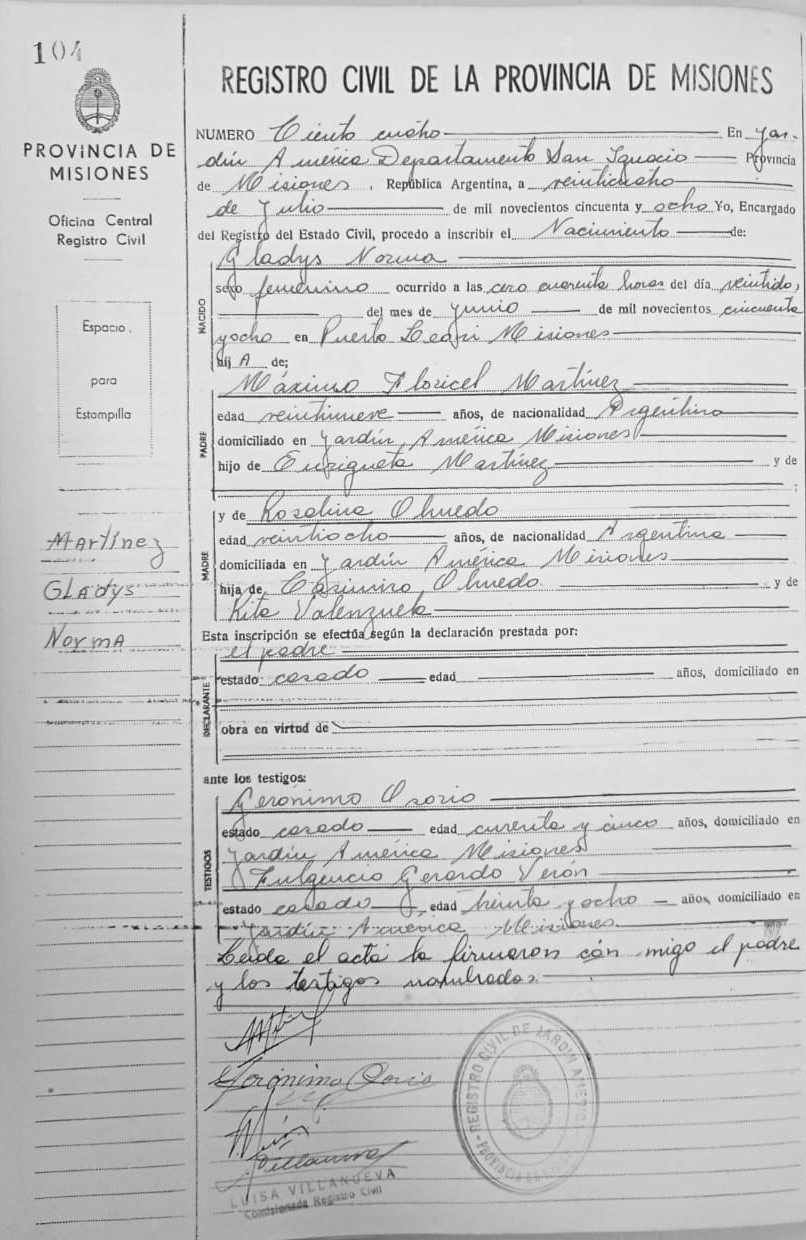 104
PROVINCIA DE
MISIONES
Oficina Central
Registro Civil
Espacio
para
Estampilla
Martínez
Gladys
Norma
REGISTRO CIVIL DE LA PROVINCIA DE MISIONES
NUMERO Ciento cuatro En Jar-
dín América Departamento San Ignacio Provincia
de Misiones, República Argentina, a veinticuatro
de Julio de mil novecientos cincuenta y ocho Yo, Encargado
del Registro del Estado Civil, procedo a inscribir el Nacimiento de:
Gladys Norma
NACIDO
sexo femenino ocurrido a las cero cuarenta horas del día veintidos
del mes de junio de mil novecientos cincuenta
y ocho en Puerto Misiones
hij A de;
PADRE
Máximo Floricel Martínez
edad veintinueve años, de nacionalidad Argentino
domiciliado en Jardín América Misiones
hijo de Enriqueta Martínez y de
;
MADRE
y de Rosalina Olmedo
edad veintiocho años, de nacionalidad Argentina
domiciliada en Jardín América Misiones
hija de Casimiro Olmedo y de
Rita Valenzuela
Esta inscripción se efectúa según la declaración prestada por:
el padre
DECLARANTE
estado casado edad años, domiciliado en
obra en virtud de
ante los testigos:
TESTIGOS
Gerónimo Osorio
estado casado edad curenta y cinco años, domiciliado en
Jardín América Misiones
Fulgencio Gerardo Verón
estado casado, edad treinta y ocho años, domiciliado en
Jardín America Misiones
Leida el acta la firmaron con migo el padre
y los testigos nombrados.
Gerónimo Osorio
Villanueva
LUISA VILLANUEVA
Comisionada Registro Civil
REGISTRO CIVIL DE JARDIN AMERICA
PROVINCIA DE